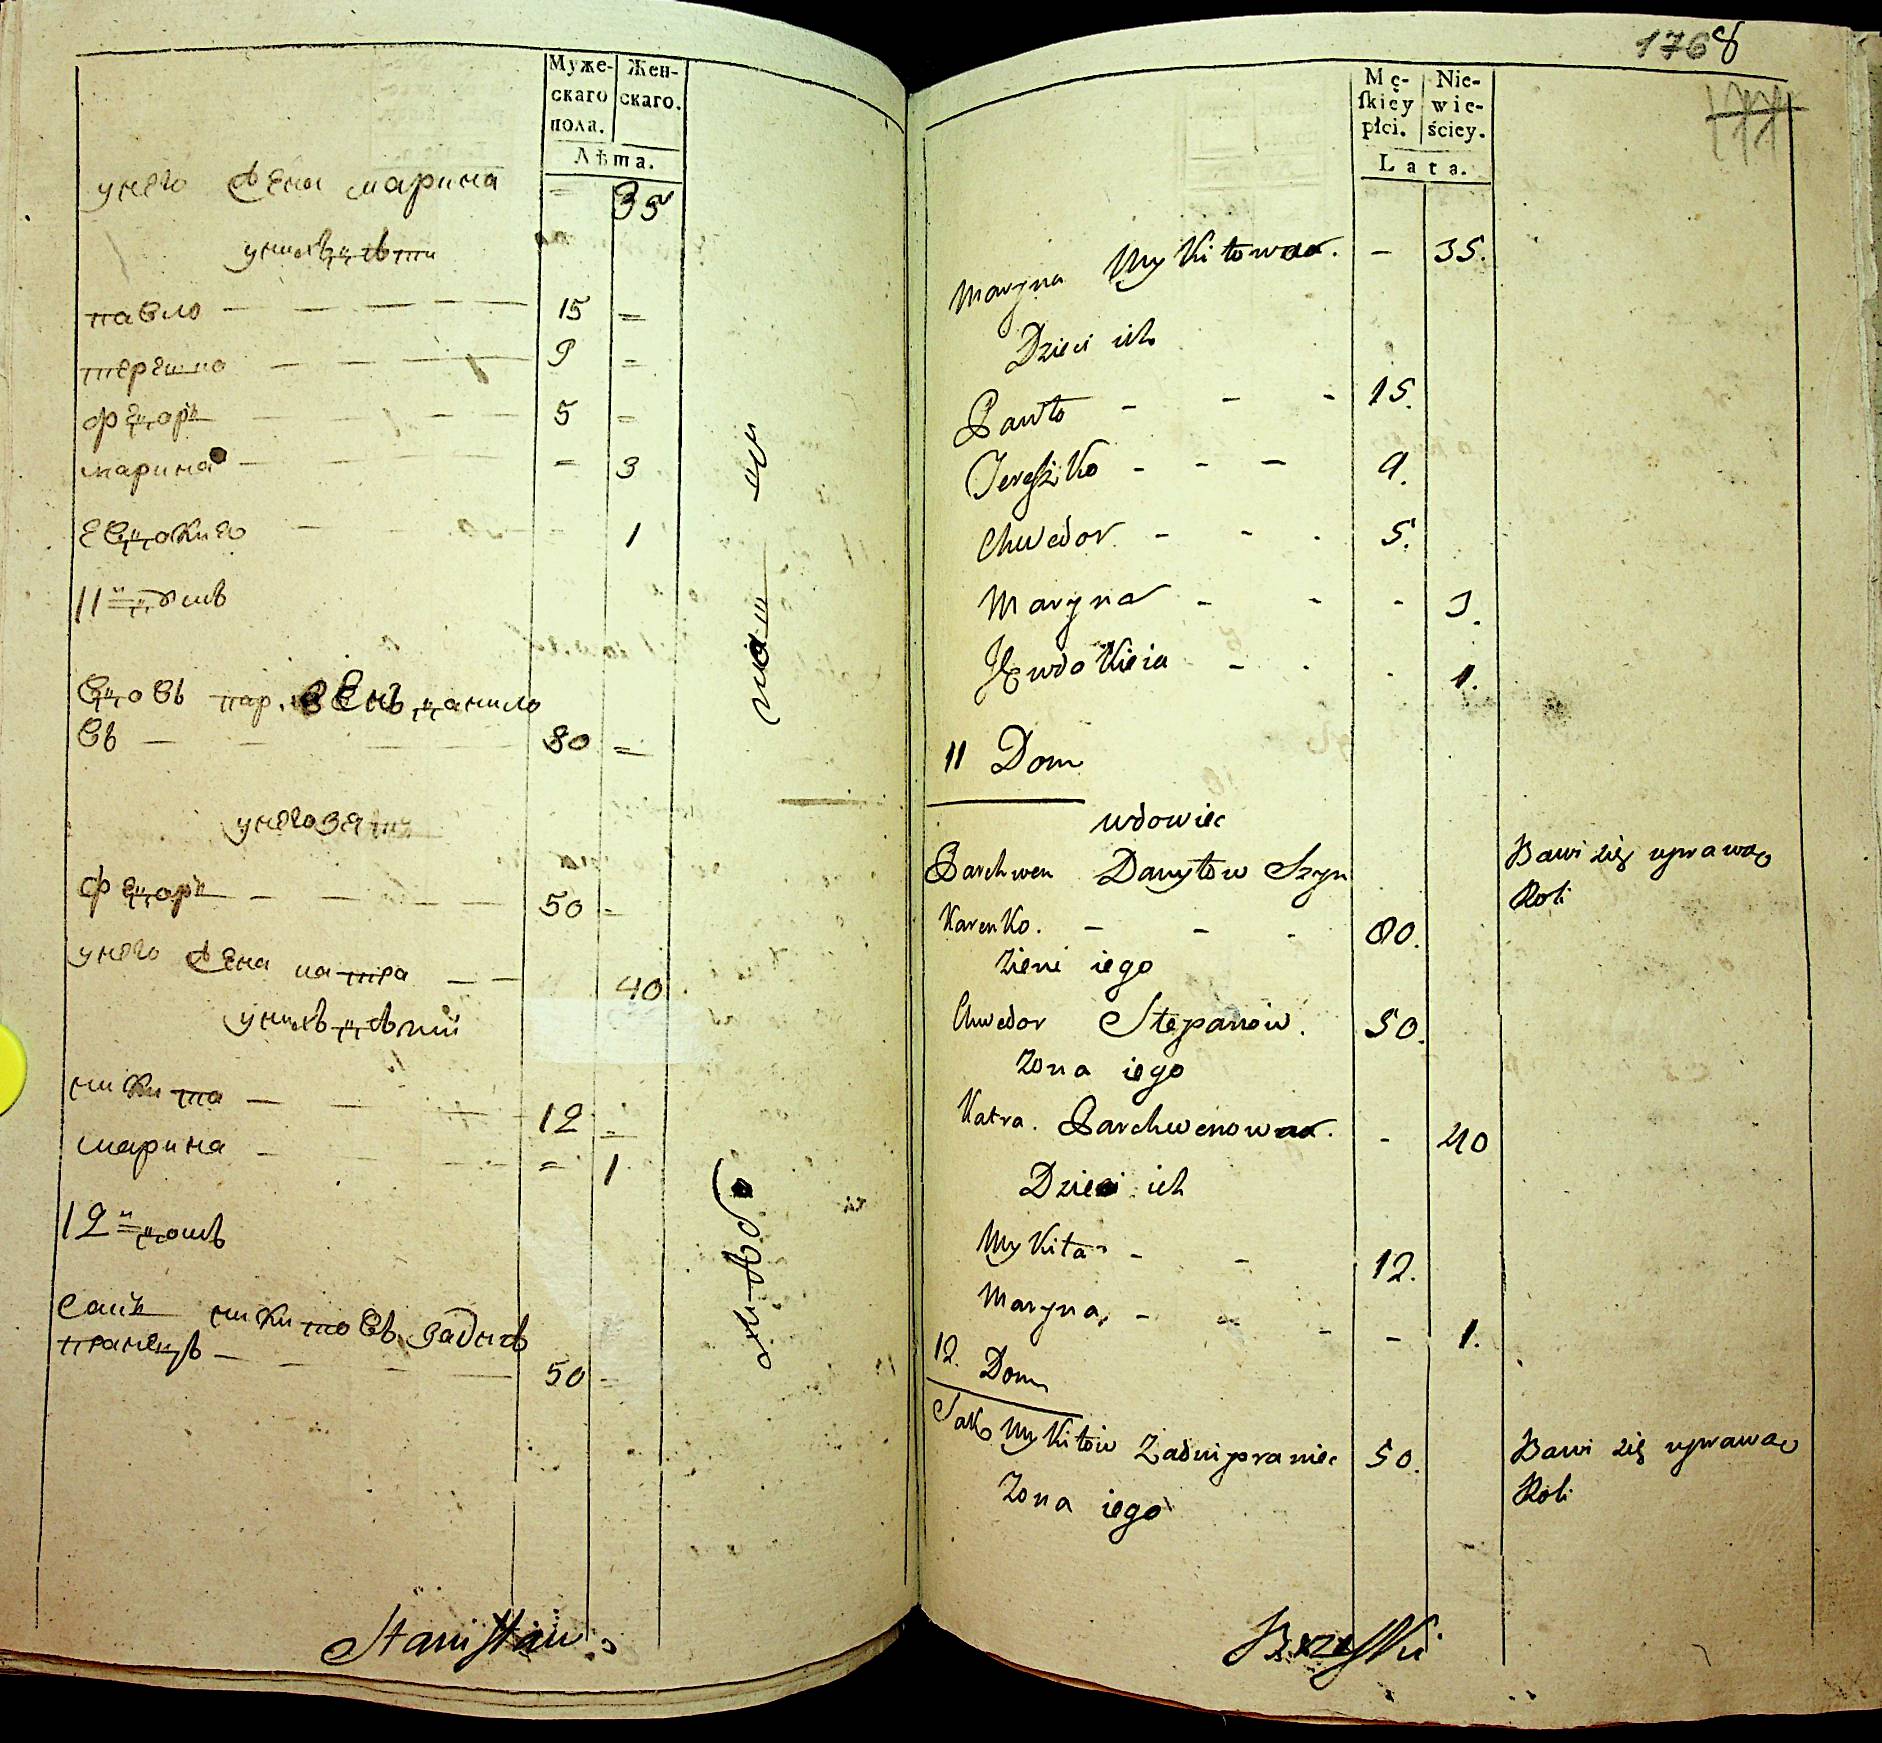 Муже-
скаго
пола.
Жен-
скаго.
Лѣта.
унего жена марина = 35
унихъ дѣти
павло 15 =
терешко 9 =
федоръ 5 =
марина = 3
евдокиѧ 1
11й домъ
вдовъ пар. венъ данило
въ 80 =
унего зять
федоръ 50 =
унего жена катра 40
унихъ дѣтий
никита 12 =
марина = 1
12й домъ
никитовъ задне
пранецъ 50 =
Stanisław
1768
Mę-
ſkiey
płci.
Nie-
wie-
ściey.
Lata.
Maryna Mykitowna. - 35.
Dzieci ich
Pawło - - - 15.
Tereszko - - - 9.
Chwedor - - - 5.
Maryna - - - 3.
Jewdokieia - - - 1.
11 Dom
wdowiec
Parchwen Danyłow Szyn
karenko. - - - 80.
Bawi się uprawą
Roli
Zięć iego
Chwedor Stepanow. 50.
Zona iego
Katra. Parchwenowna. - 40
Dzieci ich
Mykita - - 12.
Maryna, - - - - 1.
12. Dom
Sak Mykitow Zadnipraniec 50.
Bawi się uprawą
Roli
Zona iego
Brzeski